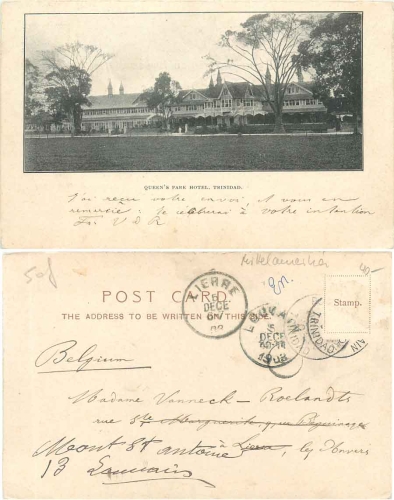 QUEEN'S PARK HOTEL, TRINIDAD.
J'ai reçu votre envoi, et vous en
remercie; je chercherai à votre intention
Fr. V d R
50f
Mittelamerika
40-
POST CARD.
THE ADDRESS TO BE WRITTEN ON THIS SIDE.
Stamp.
LIERRE
5
DECE
08
LOUVAIN
5
DECE
1908
TRINIDAD
Belgium
Madame Vanneck - Roelandts
rue Ste Marguerite, près Béguinage
Mont St Antoine à Lierre, lez Anvers
13 Louvain